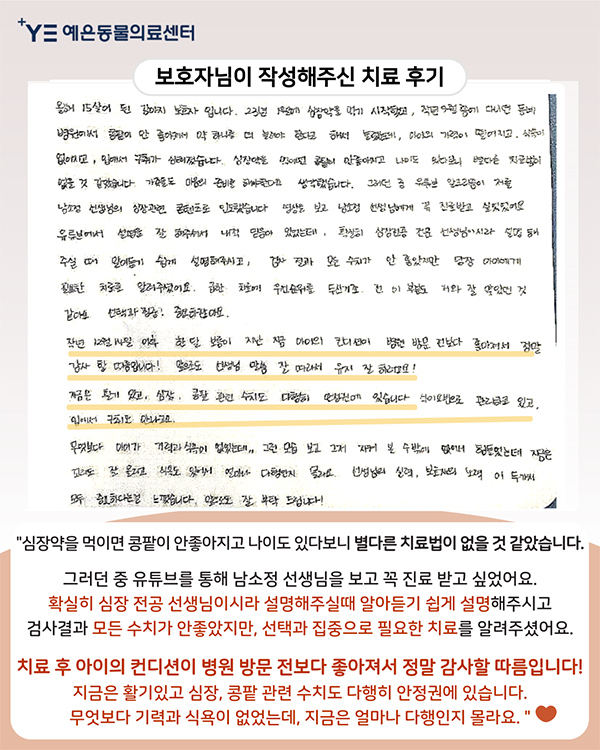 YE 예은동물의료센터
보호자님이 작성해주신 치료 후기
올해 15살이 된 강아지 보호자 입니다. 23년 1월에 심장약을 먹기 시작했고, 작년 9월 쯤에 다니던 동네
병원에서 콩팥이 안 좋아져서 약
없어지고, 입에서 구취가 심해졌습니다. 심장약을 먹이면 콩팥이 안좋아지고 나이도 있다보니 별다른 치료법이
없을 것 같았습니다. 가족들도 마음의 준비를 해야한다고 생각했습니다. 그러던 중 유튜브 알고리즘이 저를
남소정 선생님의 심장관련 콘텐츠로 인도했습니다 영상을 보고 남소정 선생님에게 꼭 진료받고 싶었어요
유튜브에서 설명을 잘 해주셔서 내적 믿음이 있었는데, 확실히 심장전공 전공 선생님이시라 설명 해
주실 때 알아듣기 쉽게 설명해주시고, 검사 결과 모든 수치가 안 좋았지만 당장 아이에게
필요한 치료를 알려주셨어요. 급한 치료에 우선순위를 두신거죠. 전 이 부분도 저와 잘 맞았던 것
같아요 선택과 집중! 중요하잖아요.
작년 12월 14일 이후 한 달 보름이 지난 지금 아이의 컨디션이 병원 방문 전보다 좋아져서 정말
감사 할 따름입니다! 앞으로도 선생님 말씀 잘 따라서 유지 잘 하려고요!
지금은 활기 있고, 심장, 콩팥 관련 수치도 다행히 안정권에 있습니다 식이요법으로 관리하고 있고,
입에서 구취도 안나고요.
무엇보다 아이가 기력과 식욕이 없었는데.. 그런 모습 보고 그저 지켜 볼 수밖에 없어서 힘들었는데 지금은
잘 올라고 식욕도 있어서 얼마나 다행인지 몰라요. 선생님의 실력, 보호자의 노력 이 두가지
모두 중요하다는걸 느꼈습니다. 앞으로도 잘 부탁 드립니다!
"심장약을 먹이면 콩팥이 안좋아지고 나이도 있다보니 별다른 치료법이 없을 것 같았습니다.
그러던 중 유튜브를 통해 남소정 선생님을 보고 꼭 진료 받고 싶었어요.
확실히 심장 전공 선생님이시라 설명해주실때 알아듣기 쉽게 설명해주시고
검사결과 모든 수치가 안좋았지만, 선택과 집중으로 필요한 치료를 알려주셨어요.
치료 후 아이의 컨디션이 병원 방문 전보다 좋아져서 정말 감사할 따름입니다!
지금은 활기있고 심장, 콩팥 관련 수치도 다행히 안정권에 있습니다.
무엇보다 기력과 식욕이 없었는데, 지금은 얼마나 다행인지 몰라요. "